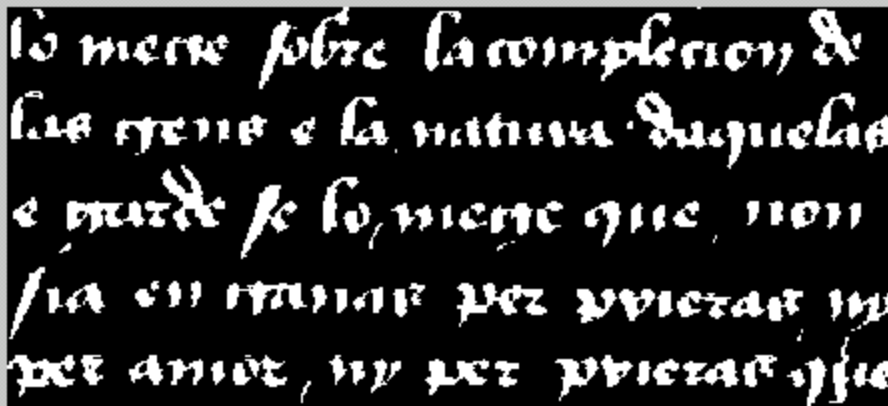 lo metie sobre la complecion de
las gens e la natura daquelas
e garde se lo, metge que non
sia en manar per pvietat ny
per amor, ny per pvietat que